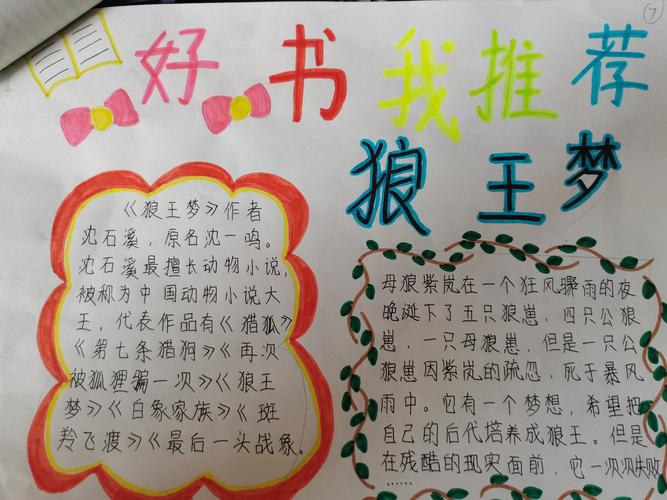 ⑦
好书我推荐
狼王梦
《狼王梦》作者
沈石溪，原名沈一鸣。
沈石溪最擅长动物小说，
被称为中国动物小说大
王，代表作品有《猎狐》
《第七条猎狗》《再次
被狐狸骗一次》《狼王
梦》《白象家族》《斑
羚飞渡》《最后一头战象。
母狼紫岚在一个狂风骤雨的夜
晚诞下了五只狼崽，四只公狼
崽，一只母狼崽，但是一只公
狼崽因紫岚的疏忽，死于暴风
雨中。它有一个梦想，希望把
自己的后代培养成狼王。但是
在残酷的现实面前，它一次次失败
……